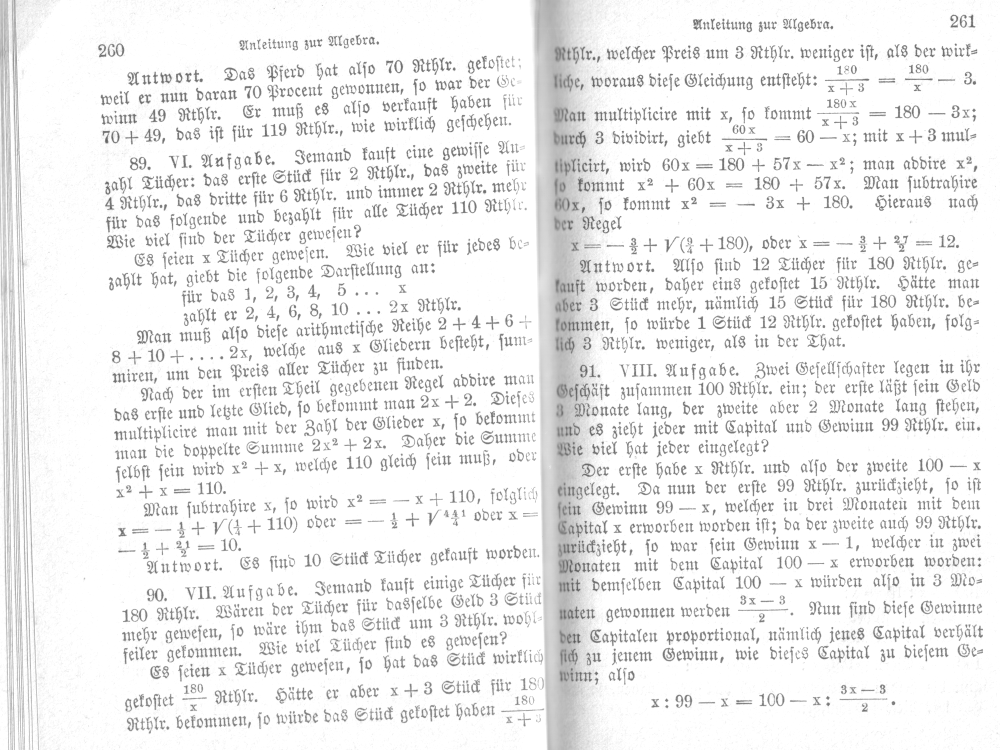 260
Anleitung zur Algebra.
Antwort. Das Pferd hat also 70 Rthlr. gekostet;
weil er nun daran 70 Procent gewonnen, so war der Ge-
winn 49 Rthlr. Er muß es also verkauft haben für
70 + 49, das ist für 119 Rthlr., wie wirklich geschehen.
89. VI. Aufgabe. Jemand kauft eine gewisse An-
zahl Tücher: das erste Stück für 2 Rthlr., das zweite für
4 Rthlr., das dritte für 6 Rthlr. und immer 2 Rthlr. mehr
für das folgende und bezahlt für alle Tücher 110 Rthlr.
Wie viel sind der Tücher gewesen?
Es seien x Tücher gewesen. Wie viel er für jedes be-
zahlt hat, giebt die folgende Darstellung an:
für das 1, 2, 3, 4, 5 ... x
zahlt er 2, 4, 6, 8, 10 ... 2x Rthlr.
Man muß also diese arithmetische Reihe 2 + 4 + 6 +
8 + 10 + .... 2x, welche aus x Gliedern besteht, sum-
miren, um den Preis aller Tücher zu finden.
Nach der im ersten Theil gegebenen Regel addire man
das erste und letzte Glied, so bekommt man 2x + 2. Dieses
multiplicire man mit der Zahl der Glieder x, so bekommt
man die doppelte Summe 2x² + 2x. Daher die Summe
selbst sein wird x² + x, welche 110 gleich sein muß, oder
x² + x = 110.
Man subtrahire x, so wird x² = — x + 110, folglich
x = — ½ + √(¼ + 110) oder = — ½ + √441/4 oder x =
— ½ + 21/2 = 10.
Antwort. Es sind 10 Stück Tücher gekauft worden.
90. VII. Aufgabe. Jemand kauft einige Tücher für
180 Rthlr. Wären der Tücher für dasselbe Geld 3 Stück
mehr gewesen, so wäre ihm das Stück um 3 Rthlr. wohl-
feiler gekommen. Wie viel Tücher sind es gewesen?
Es seien x Tücher gewesen, so hat das Stück wirklich
gekostet 180/x Rthlr. Hätte er aber x + 3 Stück für 180
Rthlr. bekommen, so würde das Stück gekostet haben 180/(x + 3)
Anleitung zur Algebra.
261
Rthlr., welcher Preis um 3 Rthlr. weniger ist, als der wirk-
liche, woraus diese Gleichung entsteht: 180/(x + 3) = 180/x — 3.
Man multiplicire mit x, so kommt 180x/(x + 3) = 180 — 3x;
durch 3 dividirt, giebt 60x/(x + 3) = 60 — x; mit x + 3 mul-
tiplicirt, wird 60x = 180 + 57x — x²; man addire x²,
so kommt x² + 60x = 180 + 57x. Man subtrahire
60x, so kommt x² = — 3x + 180. Hieraus nach
der Regel
x = — 3/2 + √(9/4 + 180), oder x = — 3/2 + 27/2 = 12.
Antwort. Also sind 12 Tücher für 180 Rthlr. ge-
kauft worden, daher eins gekostet 15 Rthlr. Hätte man
aber 3 Stück mehr, nämlich 15 Stück für 180 Rthlr. be-
kommen, so würde 1 Stück 12 Rthlr. gekostet haben, folg-
lich 3 Rthlr. weniger, als in der That.
91. VIII. Aufgabe. Zwei Gesellschafter legen in ihr
Geschäft zusammen 100 Rthlr. ein; der erste läßt sein Geld
3 Monate lang, der zweite aber 2 Monate lang stehen,
und es zieht jeder mit Capital und Gewinn 99 Rthlr. ein.
Wie viel hat jeder eingelegt?
Der erste habe x Rthlr. und also der zweite 100 — x
eingelegt. Da nun der erste 99 Rthlr. zurückzieht, so ist
sein Gewinn 99 — x, welcher in drei Monaten mit dem
Capital x erworben worden ist; da der zweite auch 99 Rthlr.
zurückzieht, so war sein Gewinn x — 1, welcher in zwei
Monaten mit dem Capital 100 — x erworben worden:
mit demselben Capital 100 — x würden also in 3 Mo-
naten gewonnen werden (3x — 3)/2. Nun sind diese Gewinne
den Capitalen proportional, nämlich jenes Capital verhält
sich zu jenem Gewinn, wie dieses Capital zu diesem Ge-
winn; also
x : 99 — x = 100 — x : (3x — 3)/2.